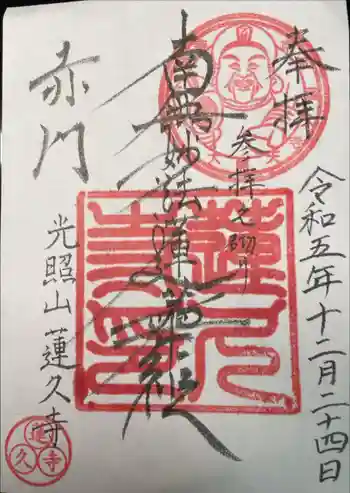 奉拝
令和五年十二月二十四日
南無妙法蓮華経
赤門
光照山 蓮久寺
蓮久寺